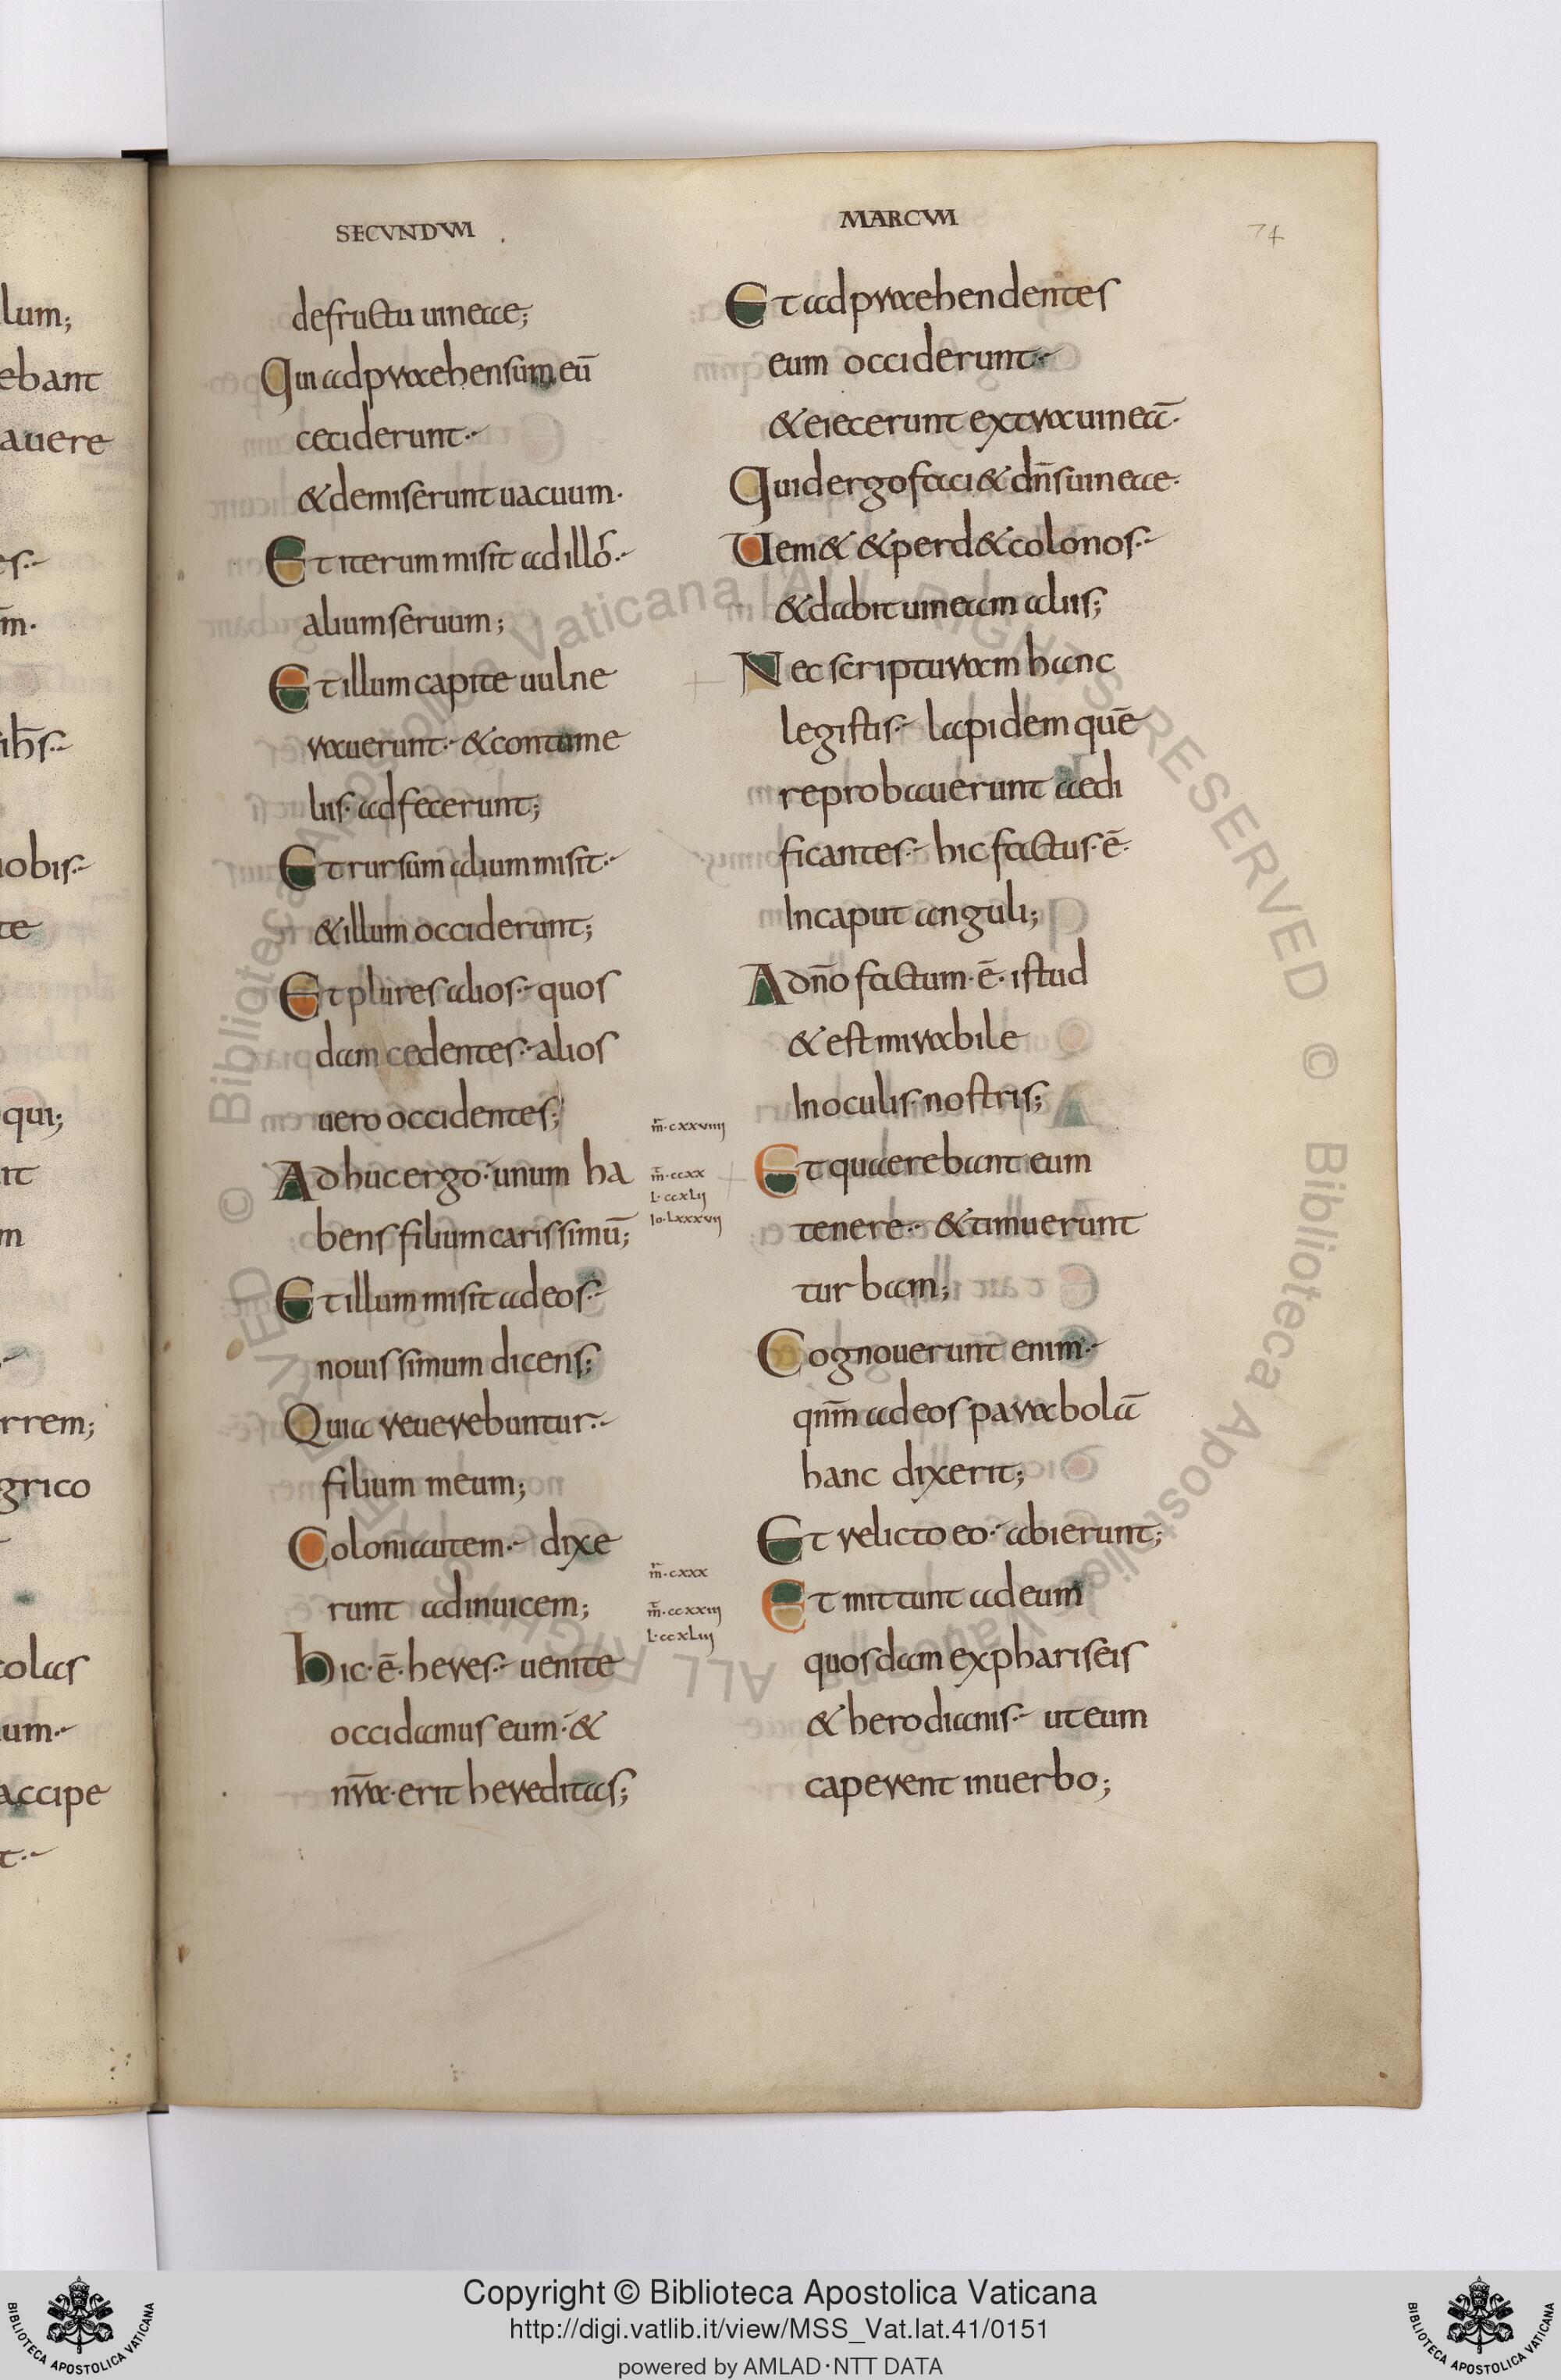 SECVNDVM
MARCVM
74
lum;
ebant
auere
es.
m̄.
ih̄s.
uobis.
te
qui;
it
m
rrem;
grico
colas
um.
accipe
t.
defructu uineae;
Qui adpraehensum eū
ceciderunt.
& demiserunt uacuum.
Et iterum misit ad illoś.
alium seruum;
Et illum capite uulne
rauerunt. & contume
liis. adfecerunt;
Et rursum alium misit.
& illum occiderunt;
Et plures alios. quos
dam cedentes. alios
uero occidentes;
Ad huc ergo. unum ha
bens filium carissimū;
Et illum misit ad eos.
nouissimum dicens;
Quia reuerebuntur.
filium meum;
Coloni autem. dixe
runt ad inuicem;
Hic. ē. heres. uenite
occidamus eum. &
nr̄a. erit hereditas;
m̄. cxxviiii
m̄. ccxx
l. ccxlij
io. lxxxvij
m̄. cxxx
m̄. ccxxiij
l. ccxliij
Et adpraehendentes
eum occiderunt.
& eiecerunt extra uineā.
Quid ergo faci& dn̄s uineae.
Uem& & perd& colonos.
& dabit uineam aliis;
Nec scripturam hanc
legistis. lapidem quē
reprobauerunt aedi
ficantes. hic factus. ē.
In caput anguli;
A dn̄o factum. ē. istud
& est mirabile
In oculis. nostris;
Et quaerebant eum
tenere. & timuerunt
turbam;
Cognouerunt enim.
qnm̄ ad eos parabolā
hanc dixerit;
Et relicto eo. abierunt;
Et mittunt ad eum
quosdam ex phariseis
& herodianis. ut eum
caperent in uerbo;
© Biblioteca Apostolica Vaticana ALL RIGHTS RESERVED
© Biblioteca Apostolica Vaticana ALL RIGHTS RESERVED
Copyright © Biblioteca Apostolica Vaticana
http://digi.vatlib.it/view/MSS_Vat.lat.41/0151
powered by AMLAD·NTT DATA
BIBLIOTECA APOSTOLICA VATICANA
BIBLIOTECA APOSTOLICA VATICANA